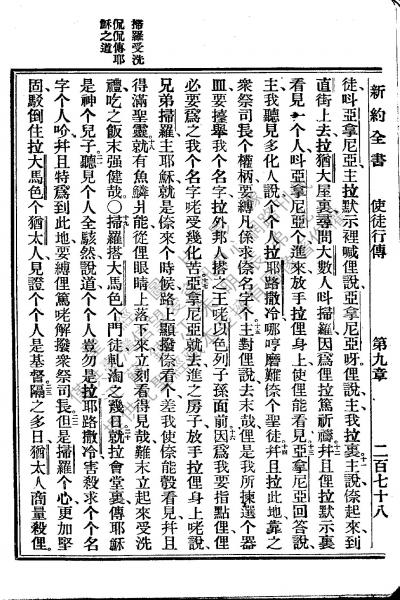 新約全書 使徒行傳 第九章 二百七十八
徒呌亞拿尼亞主拉默示裡喊俚說亞拿尼亞呀俚說主我拉裏主說倷起來到
直街上去拉猶大屋裏尋問大數人呌掃羅因爲俚拉篤祈禱幷且俚拉默示裏
看見一个人呌亞拿尼亞个進來放手拉俚身上使俚能看見亞拿尼亞回答說
主我聽見多化人說个个人拉耶路撒冷哪哼磨難倷个聖徒幷且拉此地靠之
衆祭司長个權柄要縛凡係求倷名字个主對俚說去末哉俚是我所揀選个器
皿要擡舉我个名字拉外邦人搭之王咾以色列子孫面前因爲我要指點俚俚
必要爲之我个名字咾受幾化苦亞拿尼亞就去進之房子放手拉俚身上咾說
兄弟掃羅主耶穌就是倷來个時候路上顯撥倷看个差我使倷能彀看見幷且
得滿聖靈就有魚鱗片能從俚眼睛上落下來立刻看得見哉難末立起來受洗
禮吃之飯末强健哉○掃羅搭大馬色个門徒軋淘之幾日就拉會堂裏傳耶穌
是神个兒子聽見个人全駭然說道个个人豈勿是拉耶路撒冷害殺求个个名
字个人吤幷且特爲到此地要縛俚篤咾解撥衆祭司長但是掃羅个心更加堅
固駁倒住拉大馬色个猶太人見證个个人是基督隔之多日猶太人商量殺俚
掃羅受洗
侃侃傳耶
穌之道